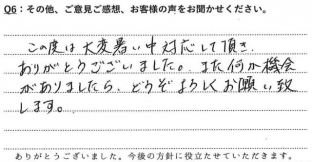 Q6：その他、ご意見ご感想、お客様の声をお聞かせください。
この度は大変暑い中対応して頂き、
ありがとうございました。また何か機会
がありましたら、どうぞよろしくお願い致
します。
ありがとうございました。今後の方針に役立たせていただきます。